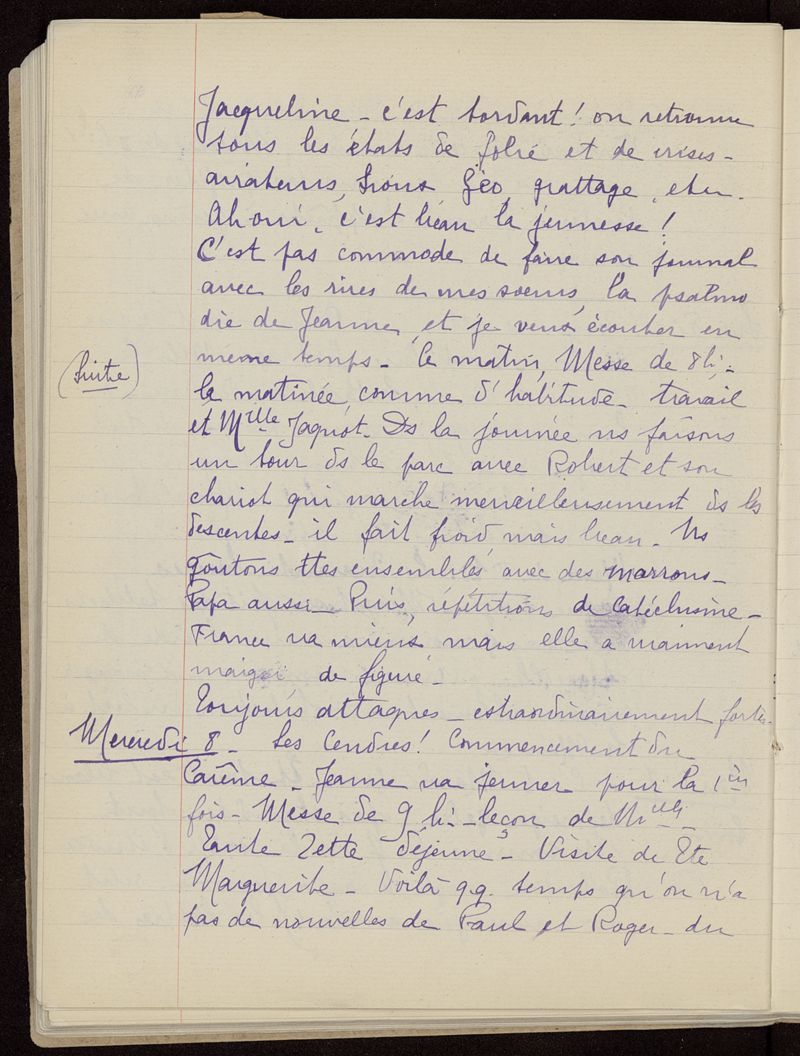 Jacqueline - c'est tordant! on retrouve
tous les états de folie et de crises -
aviateurs, Géo, grattage, etc.
Ah oui, c'est beau la jeunesse!
C'est pas commode de faire son journal
avec les rires de mes soeurs, la psalmo
die de Jeanne, et je veux écouter en
même temps - Le matin, Messe de 8h -
(Suite)
la matinée, comme d'habitude - travail
et Mlle Jaquot. Ds la journée ns faisons
un tour ds le parc avec Robert et son
chariot qui marche merveilleusement ds les
descentes - il fait froid, mais beau. Ns
goûtons ttes ensembles avec des marrons -
Papa aussi - Puis, répétitions de catéchisme -
France va mieux mais elle a vraiment
maigri de figure -
Toujours attaques - extraordinairement fortes -
Mercredi 8 - Les Cendres! Commencement du
Carême - Jeanne va jeuner pour la 1ière
fois - Messe de 9 h - leçon de Mlle -
Tante Zette déjeune - Visite de Tte
Marguerite - Voilà qq. temps qu'on n'a
pas de nouvelles de Paul et Roger - du